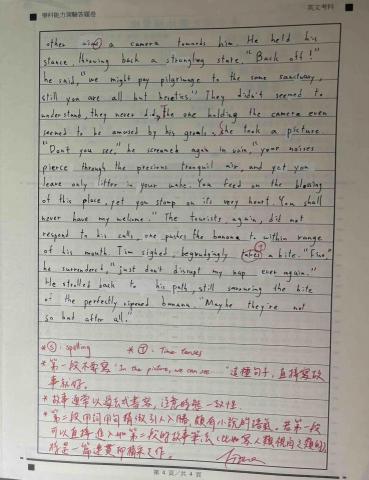 學科能力測驗答題卷 英文考科
other a camera towards him. He held his
stance, throwing back a strangling stare. "Back off!"
he said, "we might pay pilgrimage to the same sanctuary,
still you are all but heretics." They didn't seemed to
understand, they never did, The one holding the camera even
seemed to be amused by his growls. She took a picture.
"Don't you see," he screamed again in vain, "your noises
pierce through the precious tranquil air, and yet you
leave only litter in your wake. You feed on the blessing
of this place, yet you stomp on its very heart. You shall
never have my welcome." The tourists, again, did not
respond to his calls, one pushes the banana to within range
of his mouth. Tim sighed, begrudgingly takes a bite. "Fine,"
he surrendered, "just don't disrupt my nap ever again."
He strolled back to his path, still savouring the bite
of the perfectly ripened banana. "Maybe they're not
so bad after all."
*Ⓢ: spelling *Ⓣ: Time tenses
*第一段不需寫 "In the picture, we can see" 這種句子,直接寫故
事就好。
*故事通常以過去式書寫,注意時態一致性。
*第二段用詞用句精緻引人入勝,頗有小說的格局。若第一段
可以直接進入如第二段的故事筆法(比如寫人類視角之類的)
將是一篇連貫的精采之作。
第 4 頁/共 4 頁